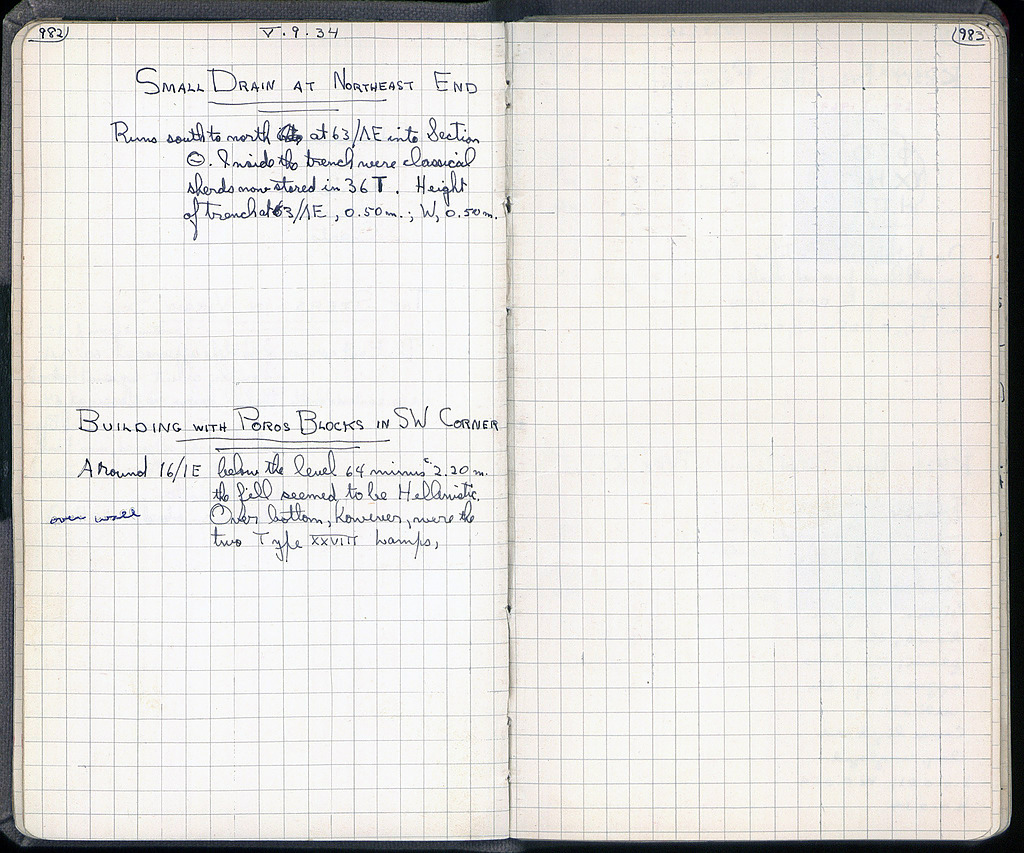 982
V.9.34
SMALL DRAIN AT NORTHEAST END
Runs south to north at 63/ΛE into Section
Θ. Inside the trench were classical
sherds now stored in 36 T. Height
of trench at 63/ΛE, 0.50 m.; W, 0.50 m.
BUILDING WITH POROS BLOCKS IN SW CORNER
Around 16/IE below the level 64 minus c. 2.20 m.
the fill seemed to be Hellenistic.
over wall
Over bottom, however, were the
two Type XXVIII Lamps,
983